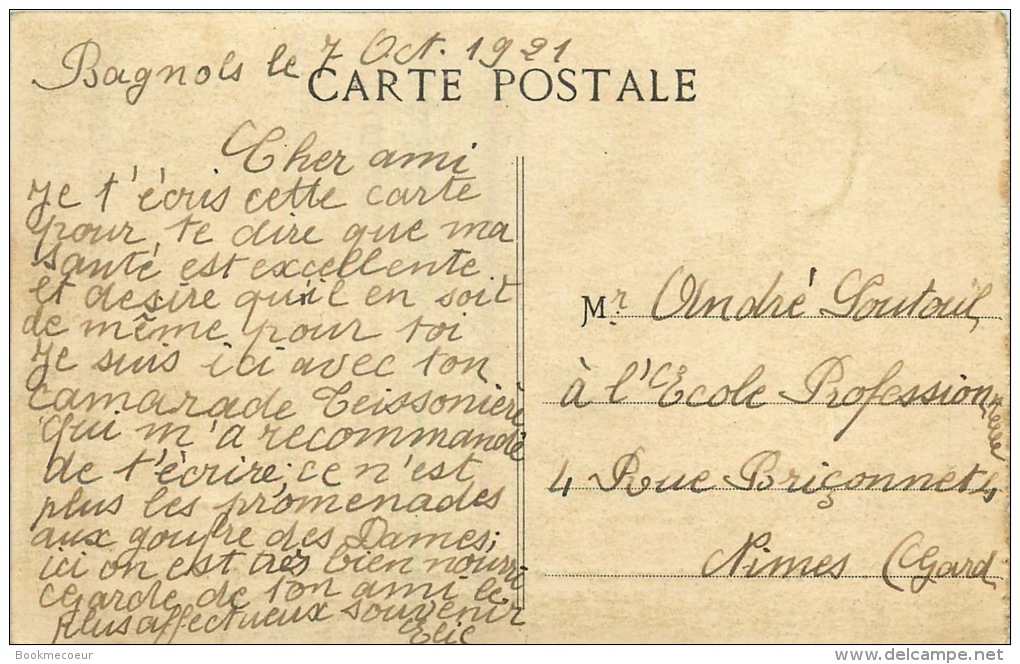 Bagnols le 7 Oct. 1921
CARTE POSTALE
Cher ami
Je t'écris cette carte
pour te dire que ma
santé est excellente
et desire qu'il en soit
de même pour toi
Je suis ici avec ton
camarade Teissonière
qui m'a recommandé
de t'écrire; ce n'est
plus les promenades
aux goufre des Dames;
ici on est très bien nourri
Garde de ton ami le
plus affectueux souvenir
Elie
Mr. André Soutoul
à l'Ecole Professionnelle
4 Rue Briçonnet 4
Nimes (Gard
Bookmecoeur
delcampe.net